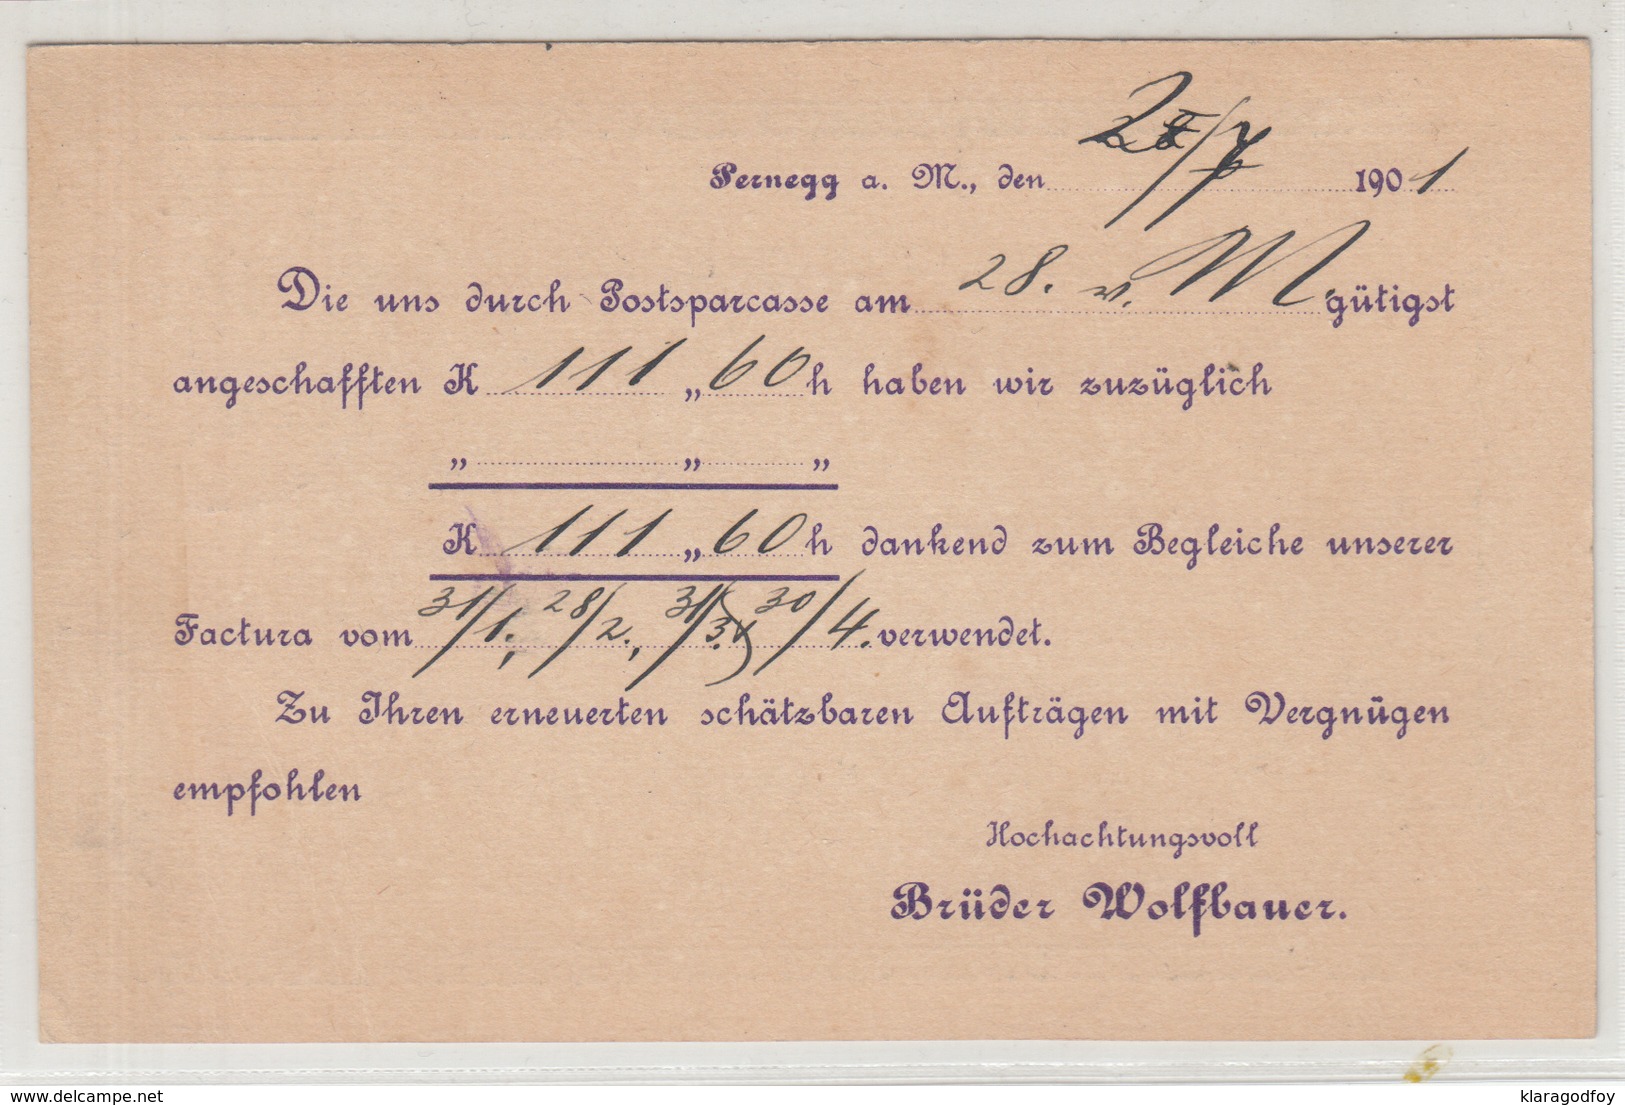 Pernegg a. M., den 2/7 1901
Die uns durch Postsparcasse am 28. v. M. gütigst
angeschafften K 111 „ 60 h haben wir zuzüglich
„ „ „
K 111 „ 60 h dankend zum Begleiche unserer
Factura vom 31/1., 28/2., 31/3. 30/4. verwendet.
Zu Ihren erneuerten schätzbaren Aufträgen mit Vergnügen
empfohlen
Hochachtungsvoll
Brüder Wolfbauer.
delcampe.net
klaragodfoy